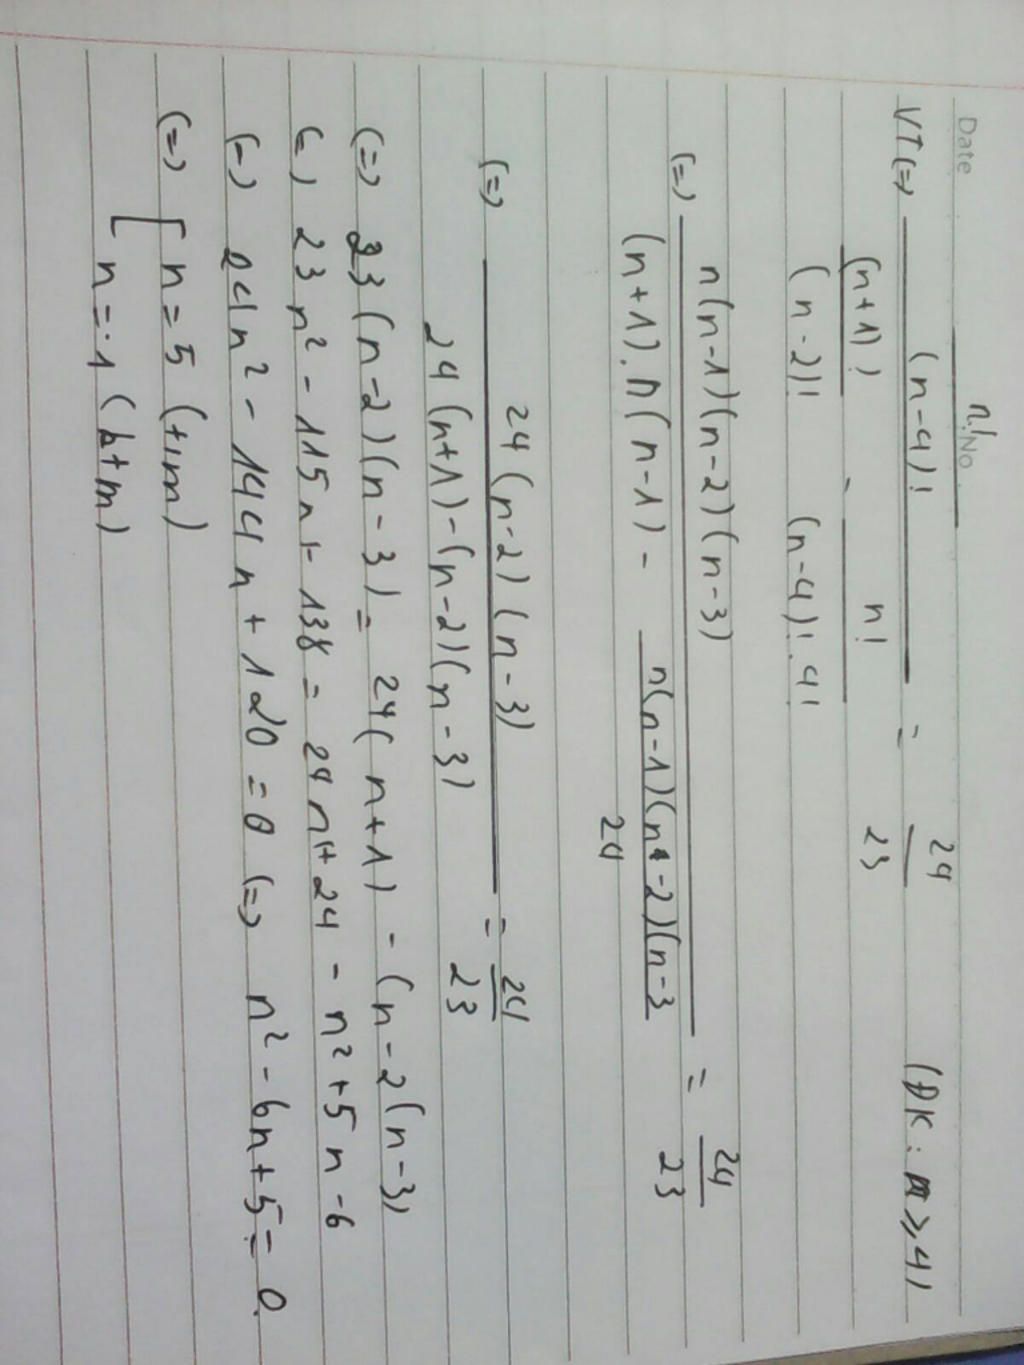 Date No
VT (=> n! / (n-4)! / ((n+1)! / (n-2)! - n! / (n-4)!.4!) = 24/23 (ĐK: n ≥ 4)
(=) n(n-1)(n-2)(n-3) / ((n+1).n(n-1) - n(n-1)(n-2)(n-3 / 24) = 24/23
(=) 24(n-2)(n-3) / (24(n+1)-(n-2)(n-3)) = 24/23
(=) 23(n-2)(n-3) = 24(n+1) - (n-2(n-3)
(=) 23n² - 115n + 138 = 24n + 24 - n² + 5n - 6
(=) 24n² - 144n + 120 = 0 (=) n² - 6n + 5 = 0
(=) [ n = 5 (t/m)
[ n = 1 (k t m)